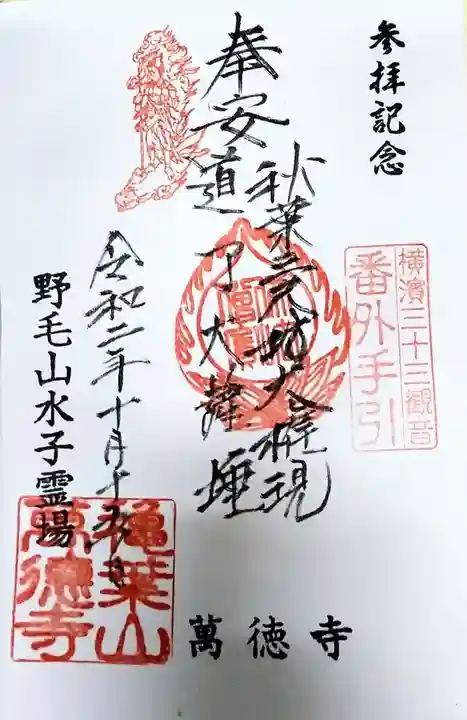 参拝記念
横濱三十三観音
番外手引
奉安
秋葉三尺坊大権現
道了大薩埵
令和二年十月十
日
野毛山水子霊場
萬徳寺
萬德寺